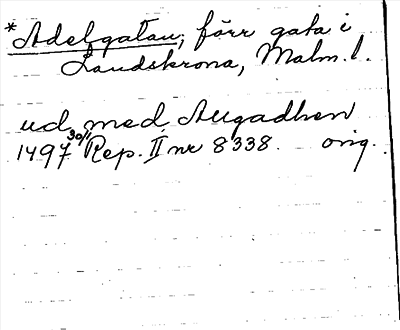 *Adelgatan, förr gata i
Landskrona, Malm. l.
ud, med, Alligadhen
1497 30/11 Rep. II nr 8338. orig.